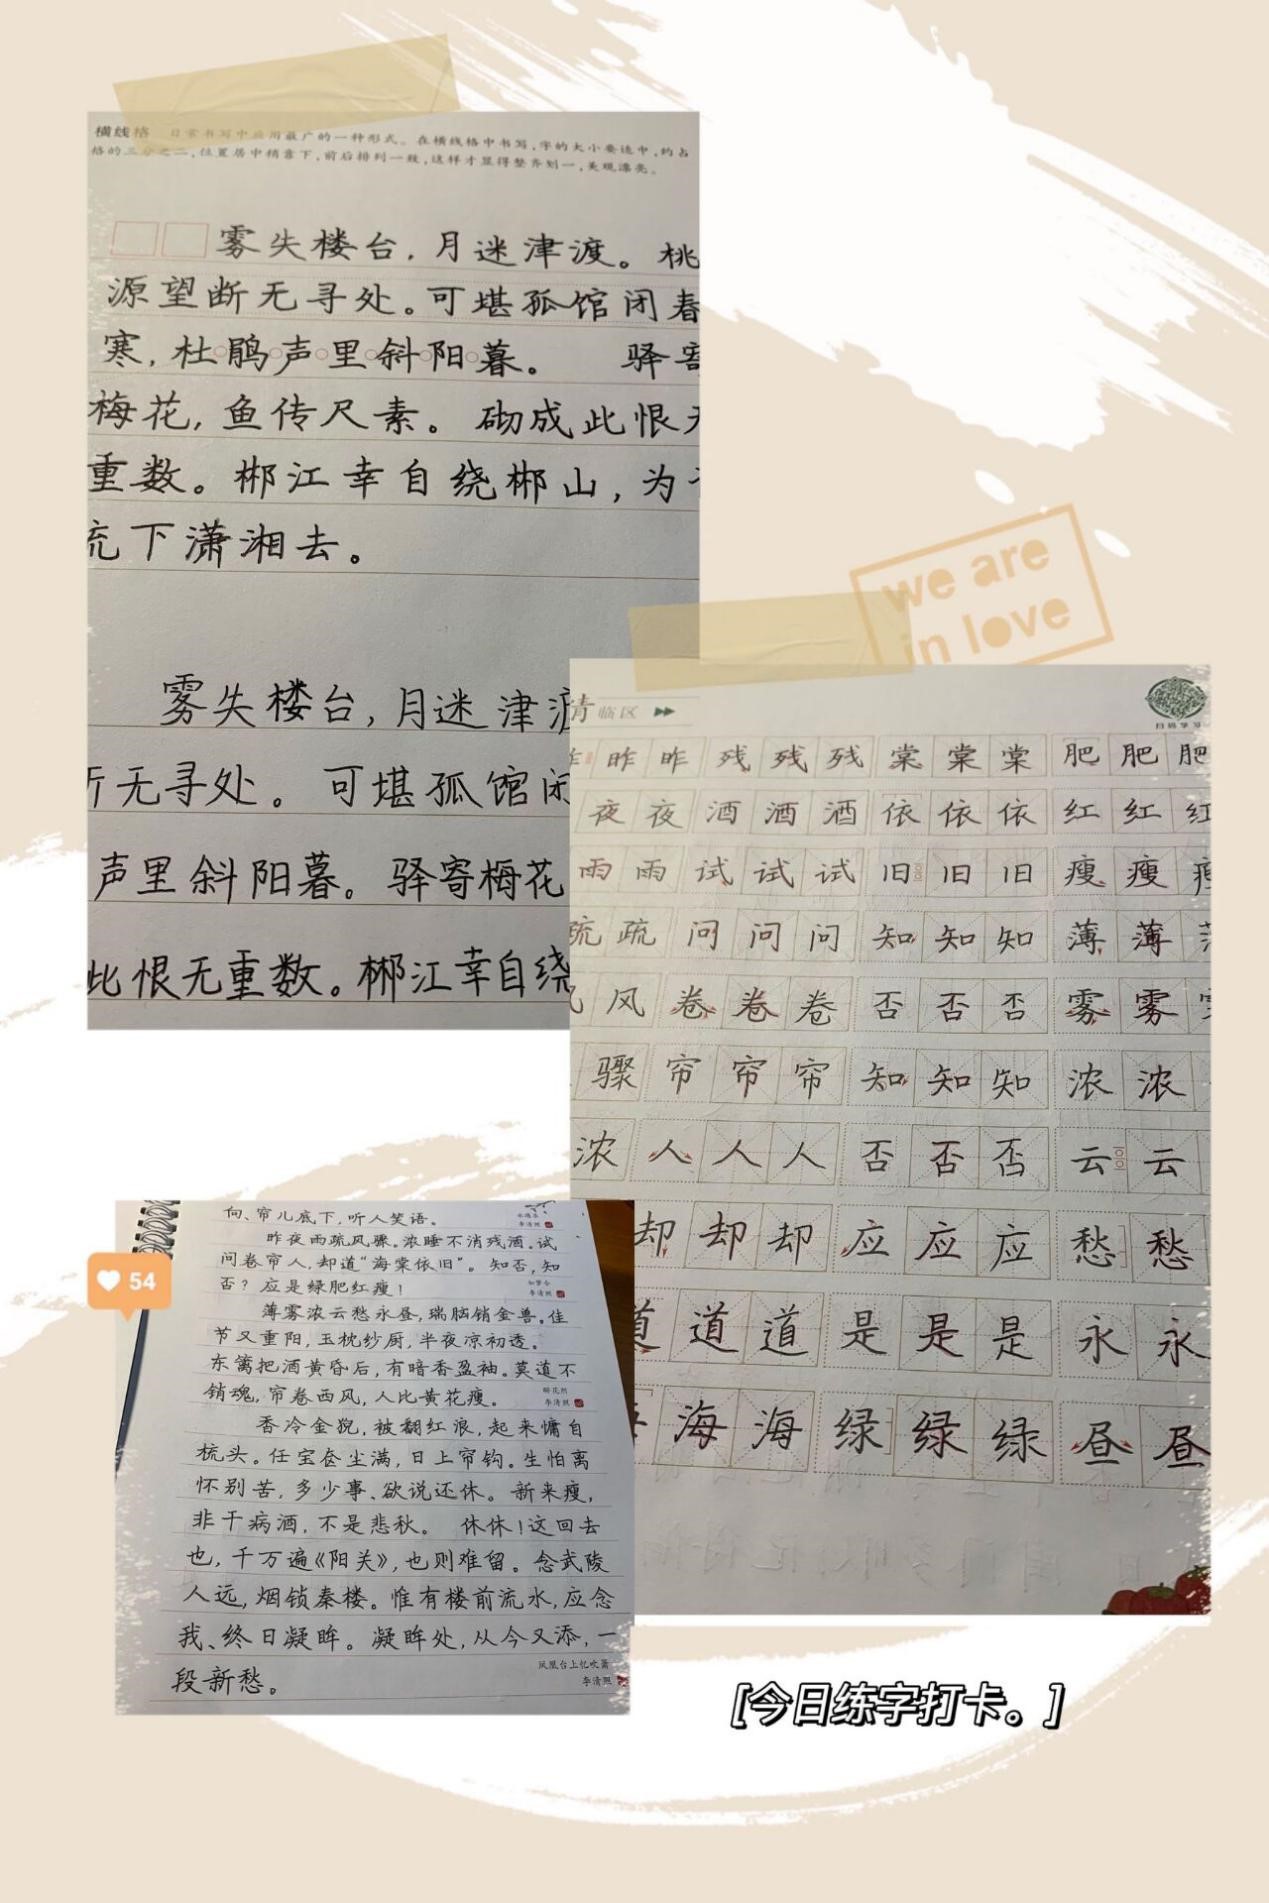 横线格 日常书写中应用最广的一种形式。在横线格中书写,字的大小要适中,约占
格的三分之二,位置居中稍靠下,前后排列一致,这样才显得整齐划一,美观漂亮。
雾失楼台,月迷津渡。桃
源望断无寻处。可堪孤馆闭春
寒,杜鹃声里斜阳暮。 驿寄
梅花,鱼传尺素。砌成此恨无
重数。郴江幸自绕郴山,为
流下潇湘去。
雾失楼台,月迷津渡
断无寻处。可堪孤馆闭
声里斜阳暮。驿寄梅花
此恨无重数。郴江幸自绕
we are
in love
临区
扫码学习
昨 昨 昨 残 残 残 棠 棠 棠 肥 肥 肥
夜 夜 酒 酒 酒 依 依 依 红 红 红
雨 雨 试 试 试 旧 旧 旧 瘦 瘦 瘦
疏 疏 问 问 问 知 知 知 薄 薄
风 风 卷 卷 卷 否 否 否 雾 雾
骤 帘 帘 帘 知 知 知 浓 浓
浓 人 人 人 否 否 否 云 云
却 却 却 应 应 应 愁 愁
道 道 道 是 是 是 永 永
海 海 绿 绿 绿 昼 昼
向、帘儿底下,听人笑语。
永遇乐
李清照
昨夜雨疏风骤。浓睡不消残酒。试
问卷帘人,却道“海棠依旧”。知否,知
否?应是绿肥红瘦!
如梦令
李清照
薄雾浓云愁永昼,瑞脑销金兽。佳
节又重阳,玉枕纱厨,半夜凉初透。
东篱把酒黄昏后,有暗香盈袖。莫道不
销魂,帘卷西风,人比黄花瘦。
醉花阴
李清照
香冷金猊,被翻红浪,起来慵自
梳头。任宝奁尘满,日上帘钩。生怕离
怀别苦,多少事、欲说还休。新来瘦,
非干病酒,不是悲秋。 休休!这回去
也,千万遍《阳关》,也则难留。念武陵
人远,烟锁秦楼。惟有楼前流水,应念
我、终日凝眸。凝眸处,从今又添,一
段新愁。
凤凰台上忆吹箫
李清照
54
[今日练字打卡。]